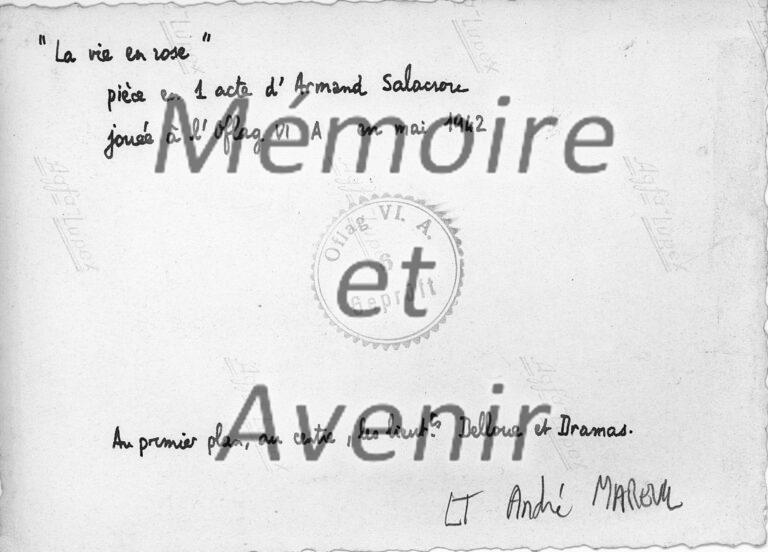 "La vie en rose"
pièce en 1 acte d'Armand Salacrou
jouée à l'Oflag VI A en mai 1942
Mémoire
et
Avenir
Oflag VI. A.
6
Geprüft
Agfa Lupex
Agfa Lupex
Agfa Lupex
Agfa Lupex
Agfa Lupex
Au premier plan, au centre, les lieut.ts et Dramas.
LT André